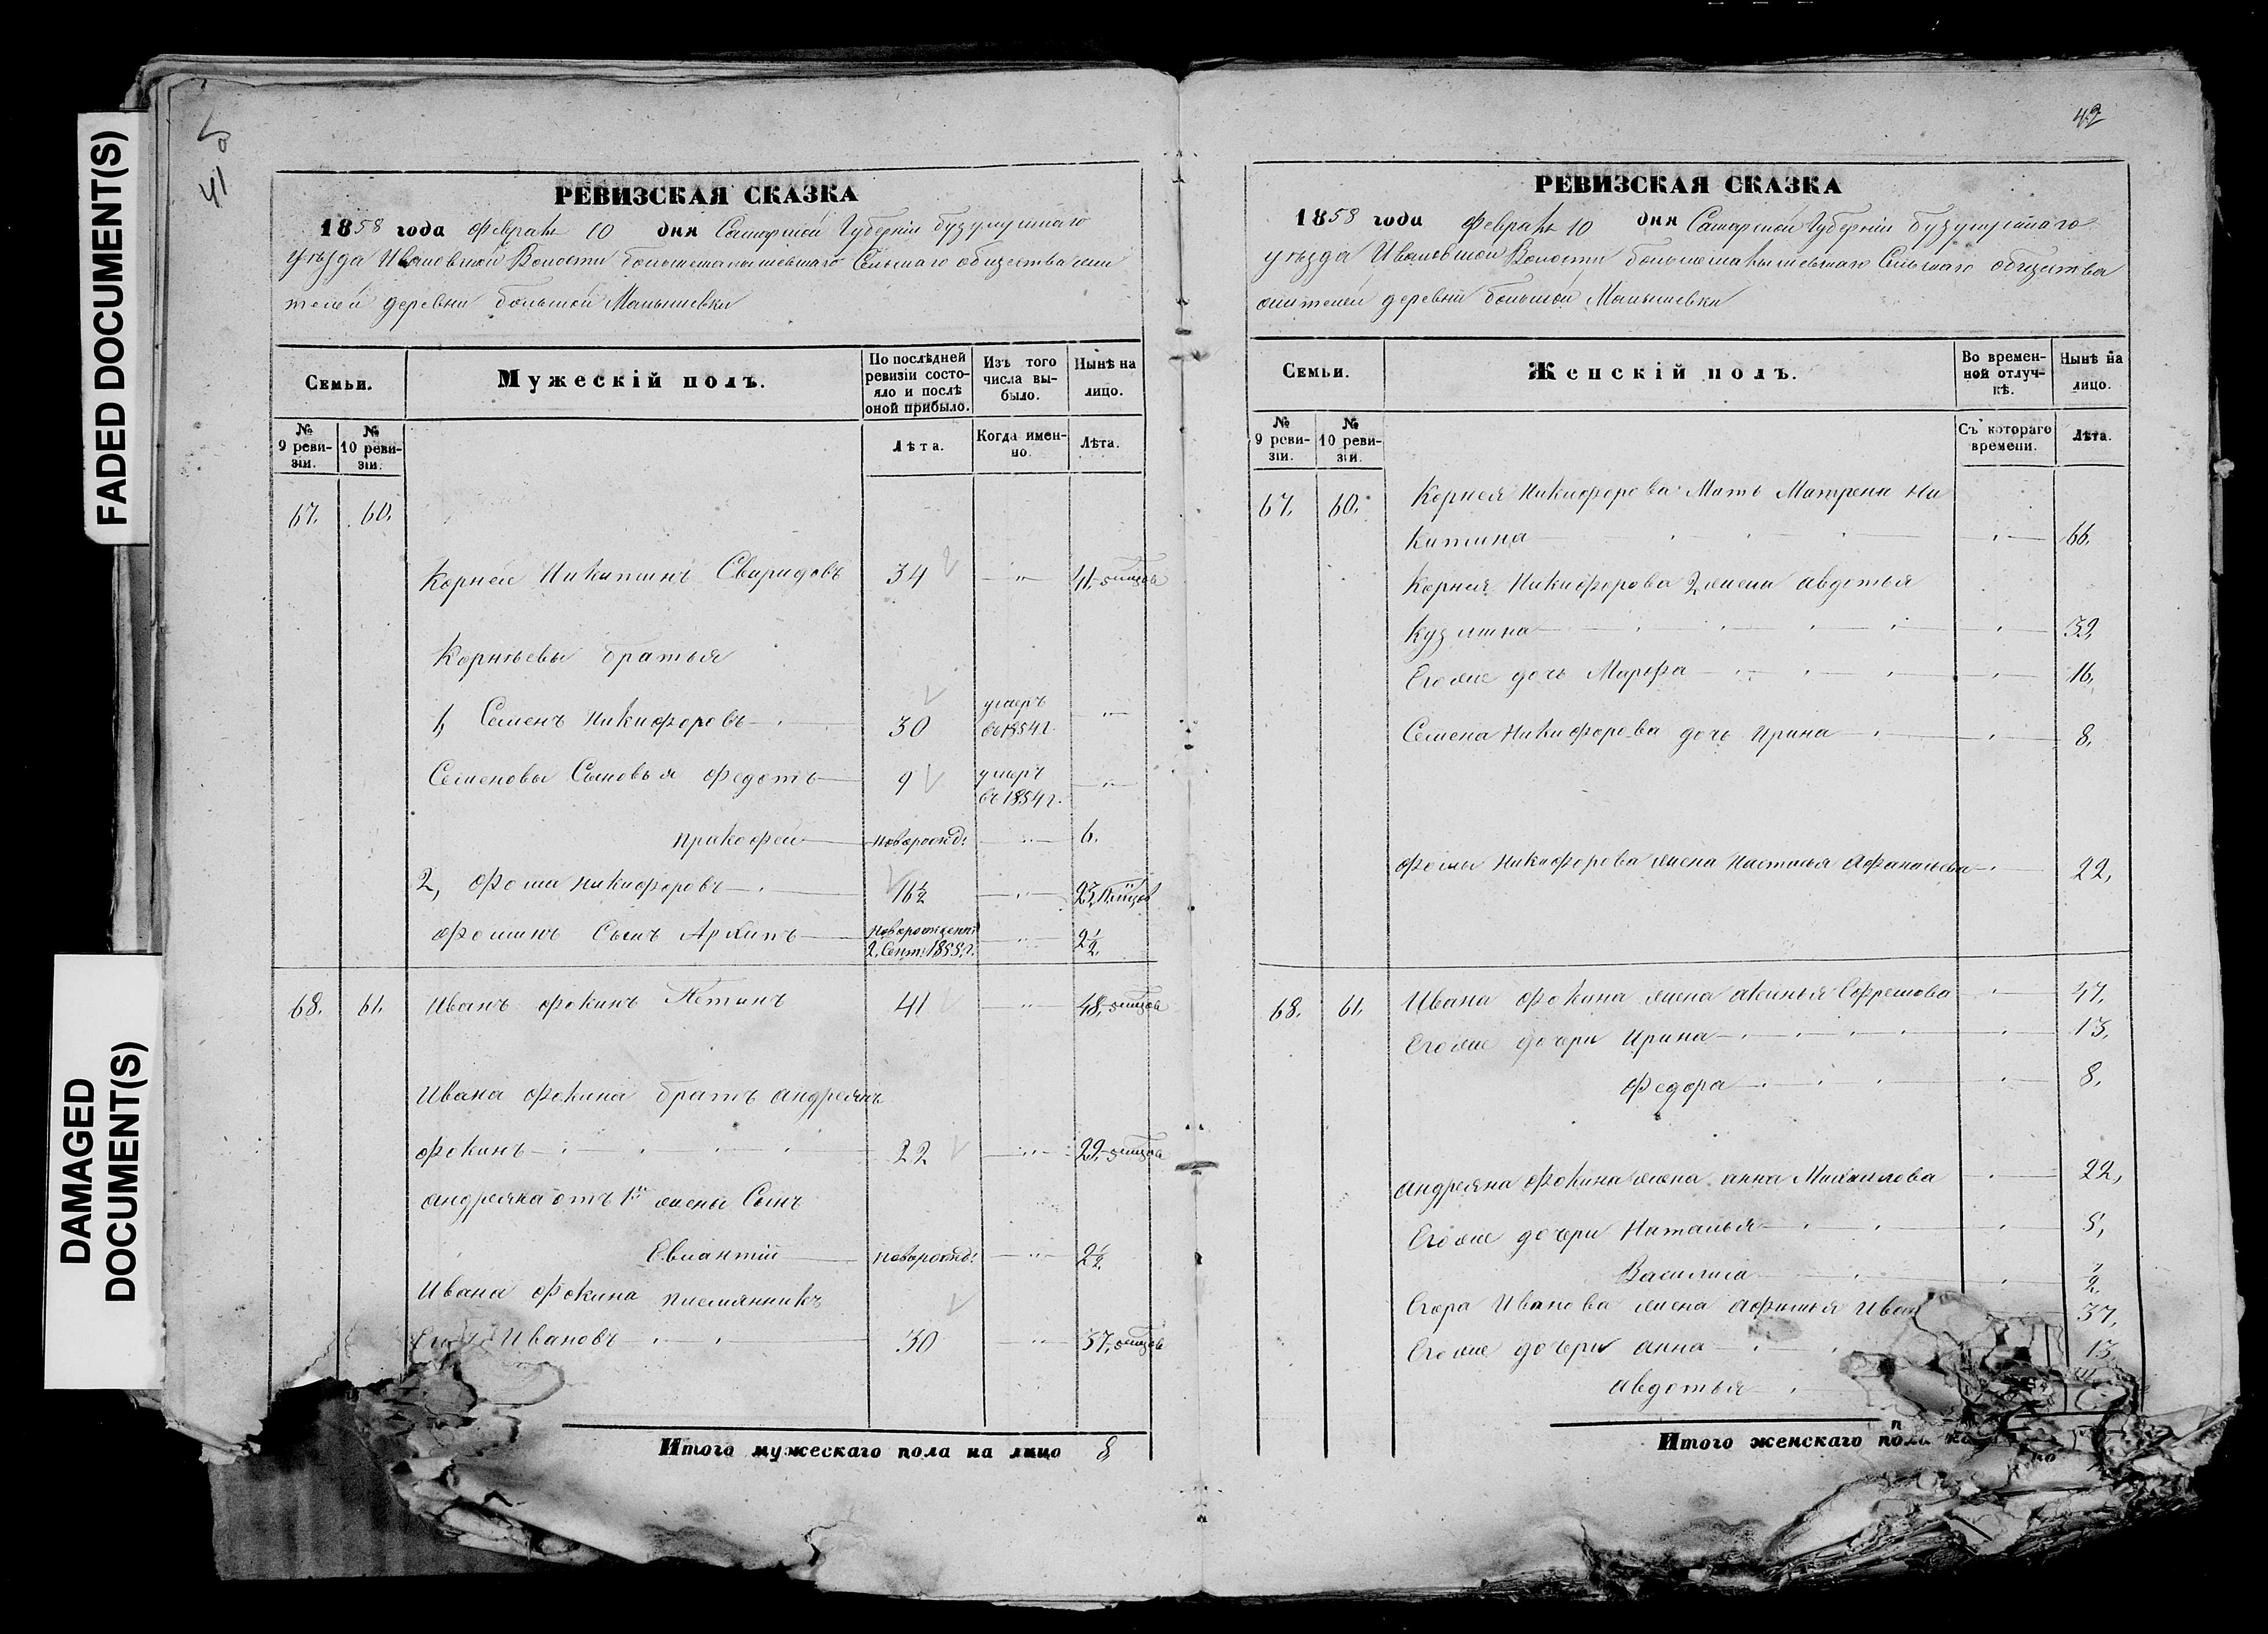 FADED DOCUMENT(S)
DAMAGED
DOCUMENT(S)
41
РЕВИЗСКАЯ СКАЗКА
1858 года Февраля 10 дня Самарской Губерніи бузулукскаго
уѣзда Ивановской Волости большемалышевскаго Сельскаго общества жи
телей деревни большой Малышевки
Семьи.
Мужескій полъ.
По послѣдней ревизіи состояло и послѣ оной прибыло.
Изъ того числа выбыло.
Нынѣ на лицо.
№ 9 ревизіи.
№ 10 ревизіи.
Лѣта.
Когда именно.
Лѣта.
67. 60.
Корней Никитинъ Свиридовъ 34 — " — 41
Корнѣевы братья
1, Семенъ Никифоровъ 30 умеръ въ 1854 г. — " —
Семеновы Сыновья Федотъ 9 умеръ въ 1854 г. — " —
Пракофей новорожд: — " — 6.
2, Фома Никифоровъ 16½ — " — 23
Фоминъ Сынъ Архипъ новорожденн 2. Сент. 1855 г. — " — 2½
68. 61. Иванъ Фокинъ 41 — " — 48
Ивана Фокина братъ андреянъ
Фокинъ 22 — " — 29
андреяна отъ 1й жены Сынъ
Евлантій новорожд: — " — 2½
Ивана Фокина племянникъ
Ивановъ 30 — " — 37
Итого мужескаго пола на лицо 8
42
РЕВИЗСКАЯ СКАЗКА
1858 года Февраля 10 дня Самарской Губерніи бузулукскаго
уѣзда Ивановской Волости большемалышевскаго Сельскаго общества
жителей деревни большой Малышевки
Семьи.
Женскій полъ.
Во временной отлучкѣ.
Нынѣ на лицо.
№ 9 ревизіи.
№ 10 ревизіи.
Съ котораго времени.
Лѣта.
67. 60. Корнея Никифорова Мать Матрена Ни
китина 66.
Корнея Никифорова 2 жена авдотья
Кузмина 39,
Его же дочь Марфа 16,
Семена Никифорова дочь Ирина 8.
Фомы Никифорова жена Настасья Афанасьева 22,
68. 61. Ивана Фокина жена аксинья Ефремова 47.
Его же дочери Ирина 13,
Федора 8.
андреяна Фокина жена анна Михайлова 22,
Его же дочери Наталья 5,
Василиса ½
Егора Иванова жена афимья Иван 37,
Его же дочери анна 13
авдотья
Итого женскаго пола